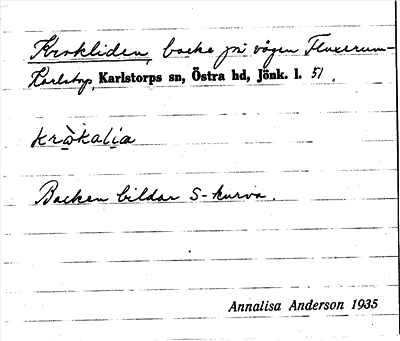 Krokliden, backe på vägen Fluxerum-
Karlstorp, Karlstorps sn, Östra hd, Jönk. l. 51.
kròkalia
Backen bildar S-kurva.
Annalisa Anderson 1935